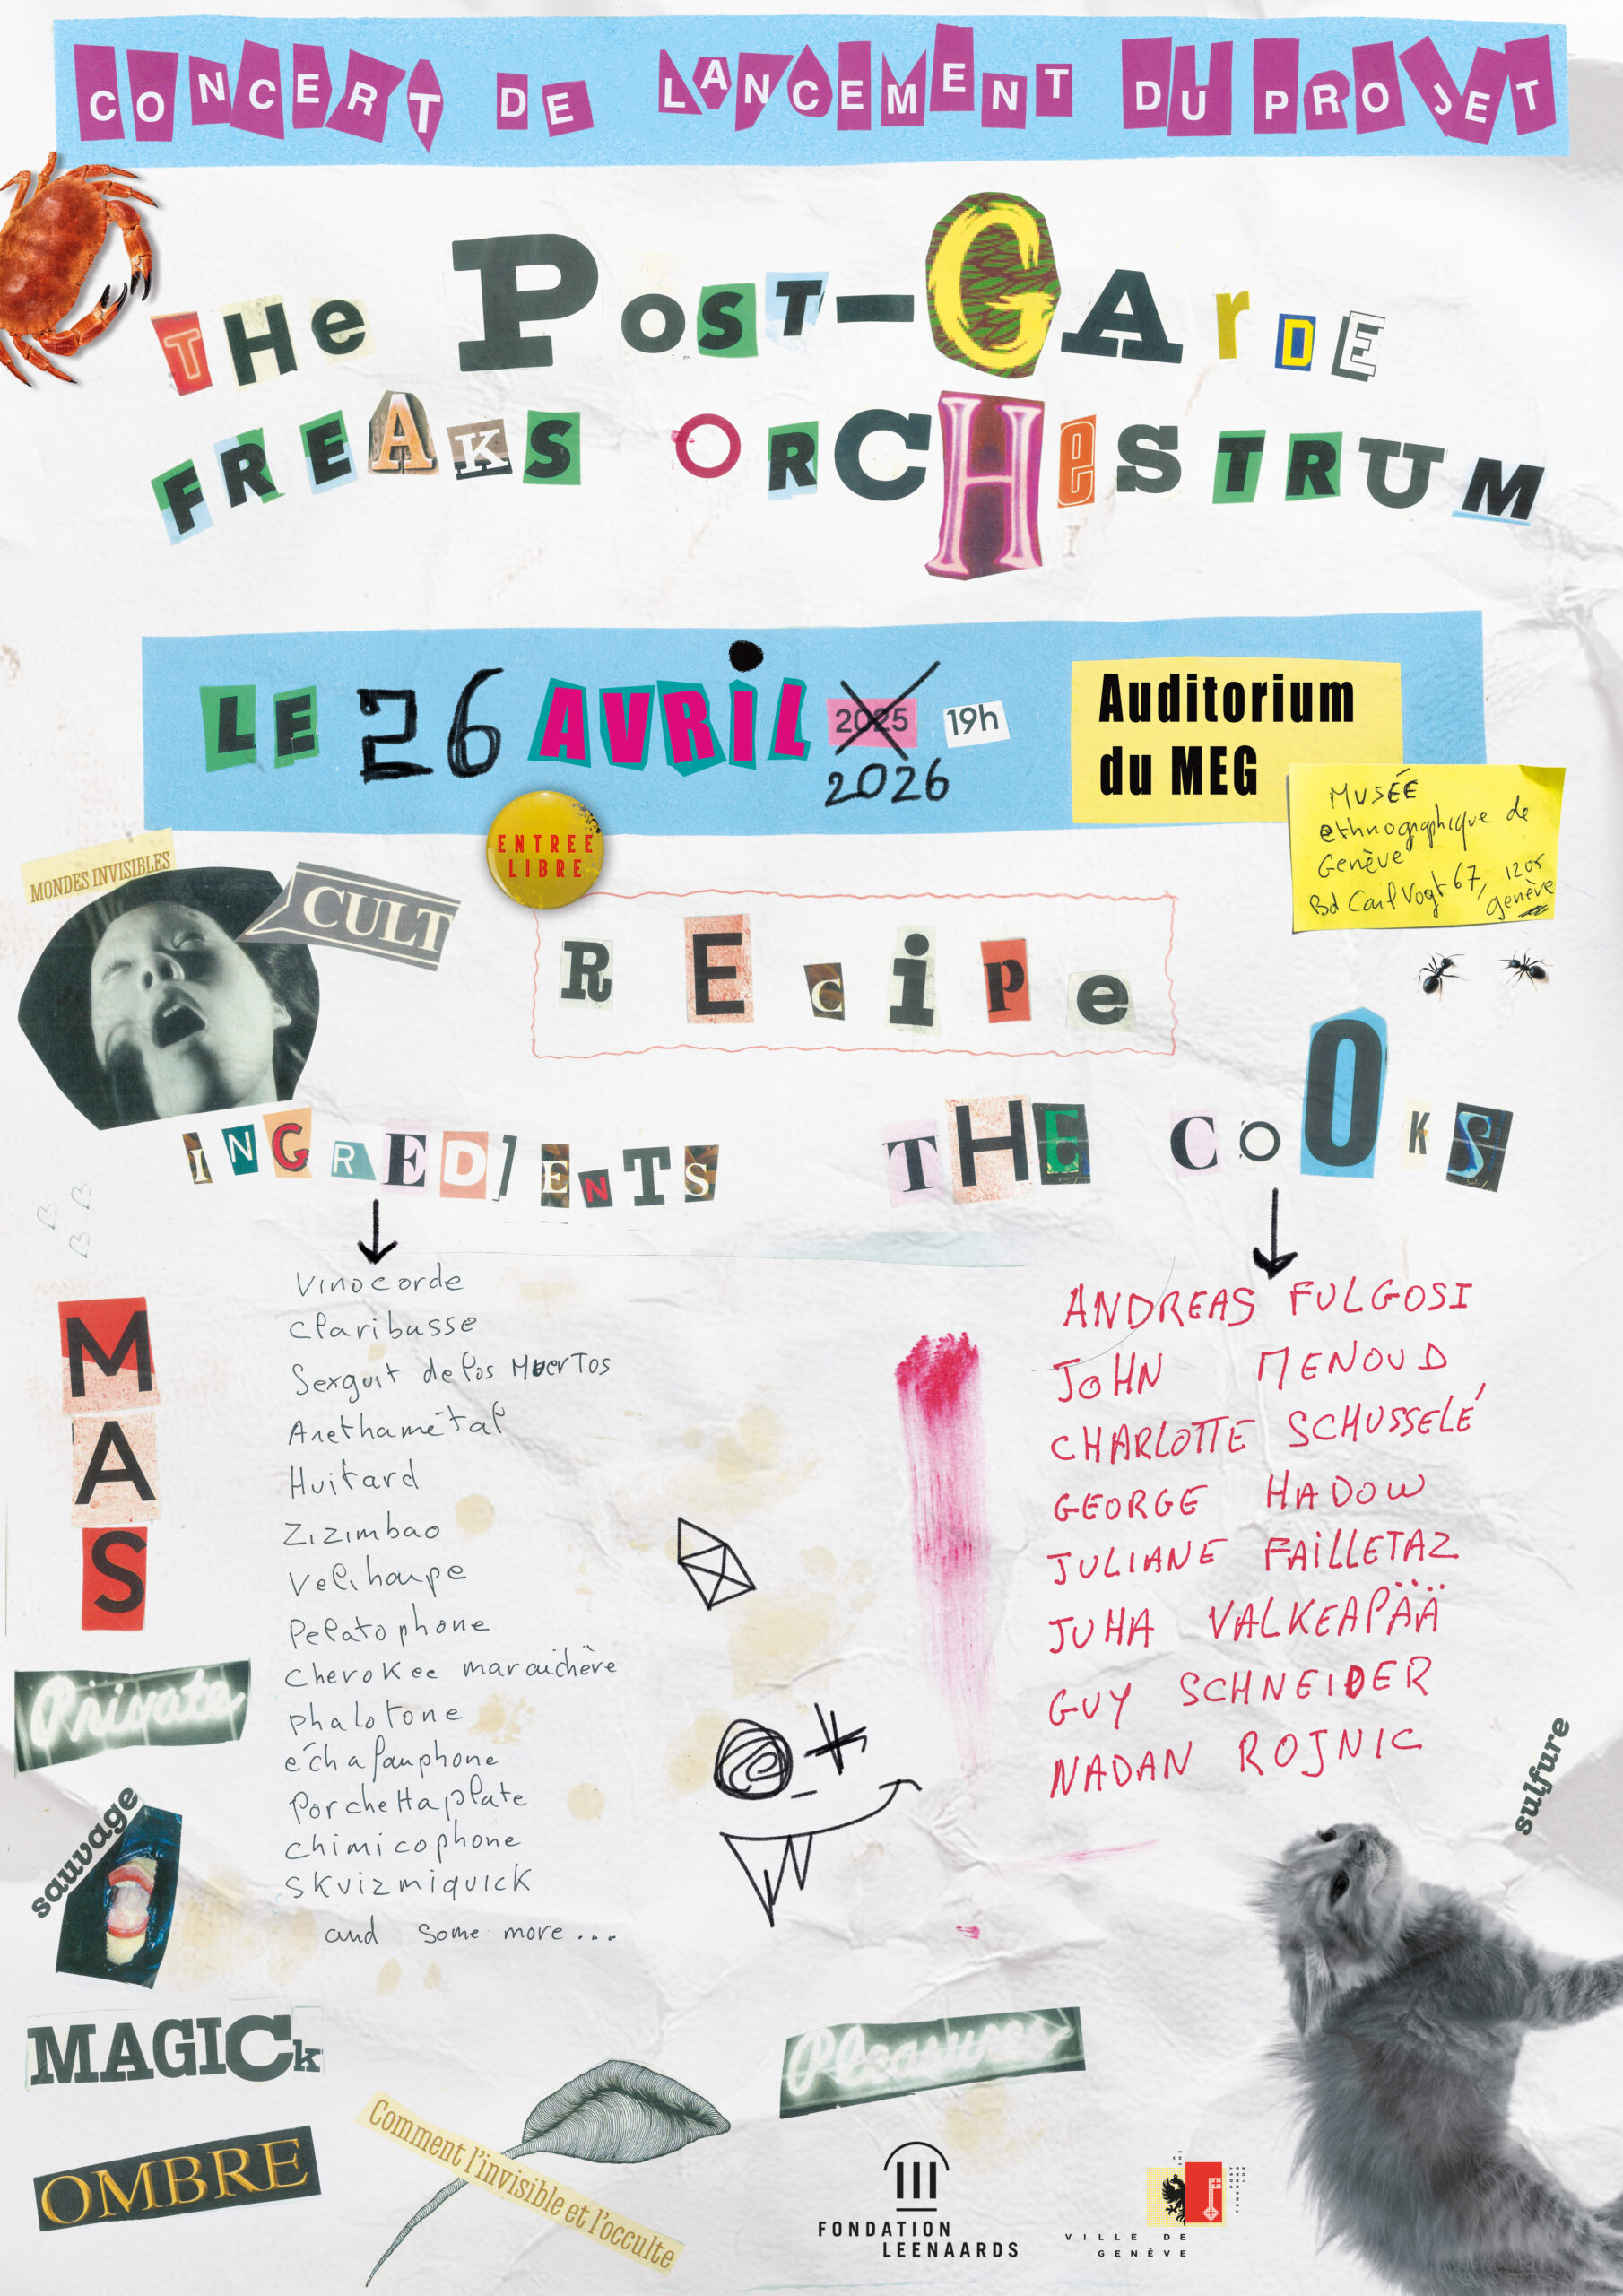 CONCERT DE LANCEMENT DU PROJET
THe PosT-GArDE
FREAKS OrCHeSTRUM
LE 26 AVRiL 2025 19h
2026
Auditorium
du MEG
MUSÉE
ethnographique de
Genève
Bd Carl Vogt 67, 1205
genève
ENTREE
LIBRE
MONDES INVISIBLES
CULT
REcipe
INGREDIENTS
THE COOKS
Vinocorde
Claribasse
Sexguit de los MuerTos
Arethamétal
Huitard
Zizimbao
Veliharpe
Pelatophone
Cherokee maraichère
phalotone
échafauphone
Porchettaplate
chimicophone
SkvizmiquicK
and some more...
ANDREAS FULGOSI
JOHN MENOUD
CHARLOTTE SCHUSSELÉ
GEORGE HADOW
JULIANE FAiLLETAZ
JUHA VALKEAPÄÄ
GUY SCHNEIDER
NADAN ROJNIC
MAS
Private
sauvage
sulfure
MAGICk
OMBRE
Pleasures
Comment l'invisible et l'occulte
FONDATION
LEENAARDS
VILLE DE
GENÈVE